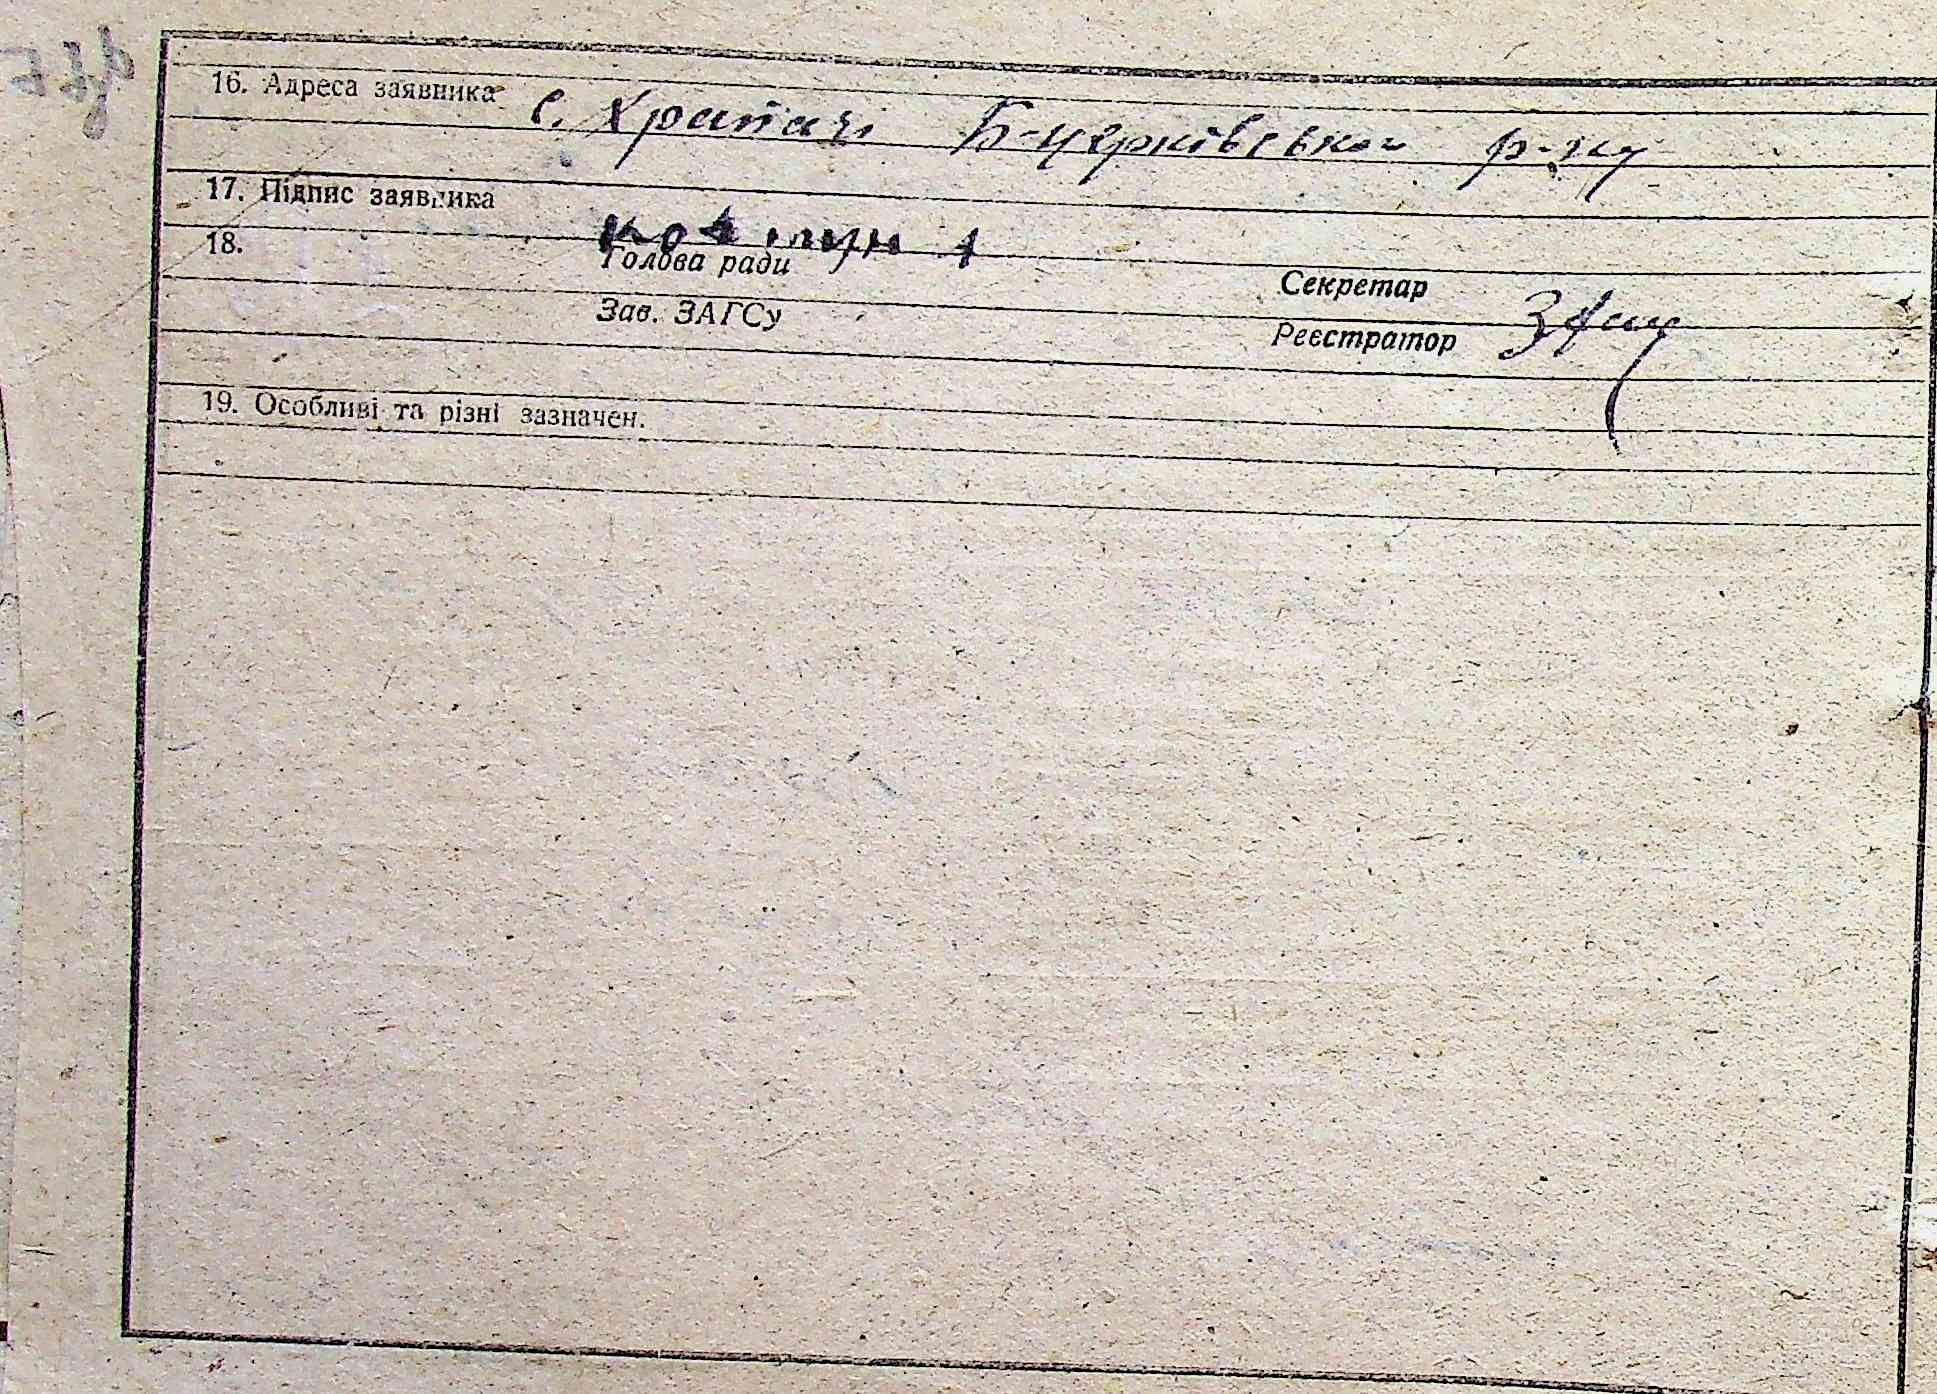 16. Адреса заявника с. Храпачі Б-церківського р-ну
17. Підпис заявника
18.
Голова ради Секретар
Зав. ЗАГСу Реєстратор
19. Особливі та різні зазначен.